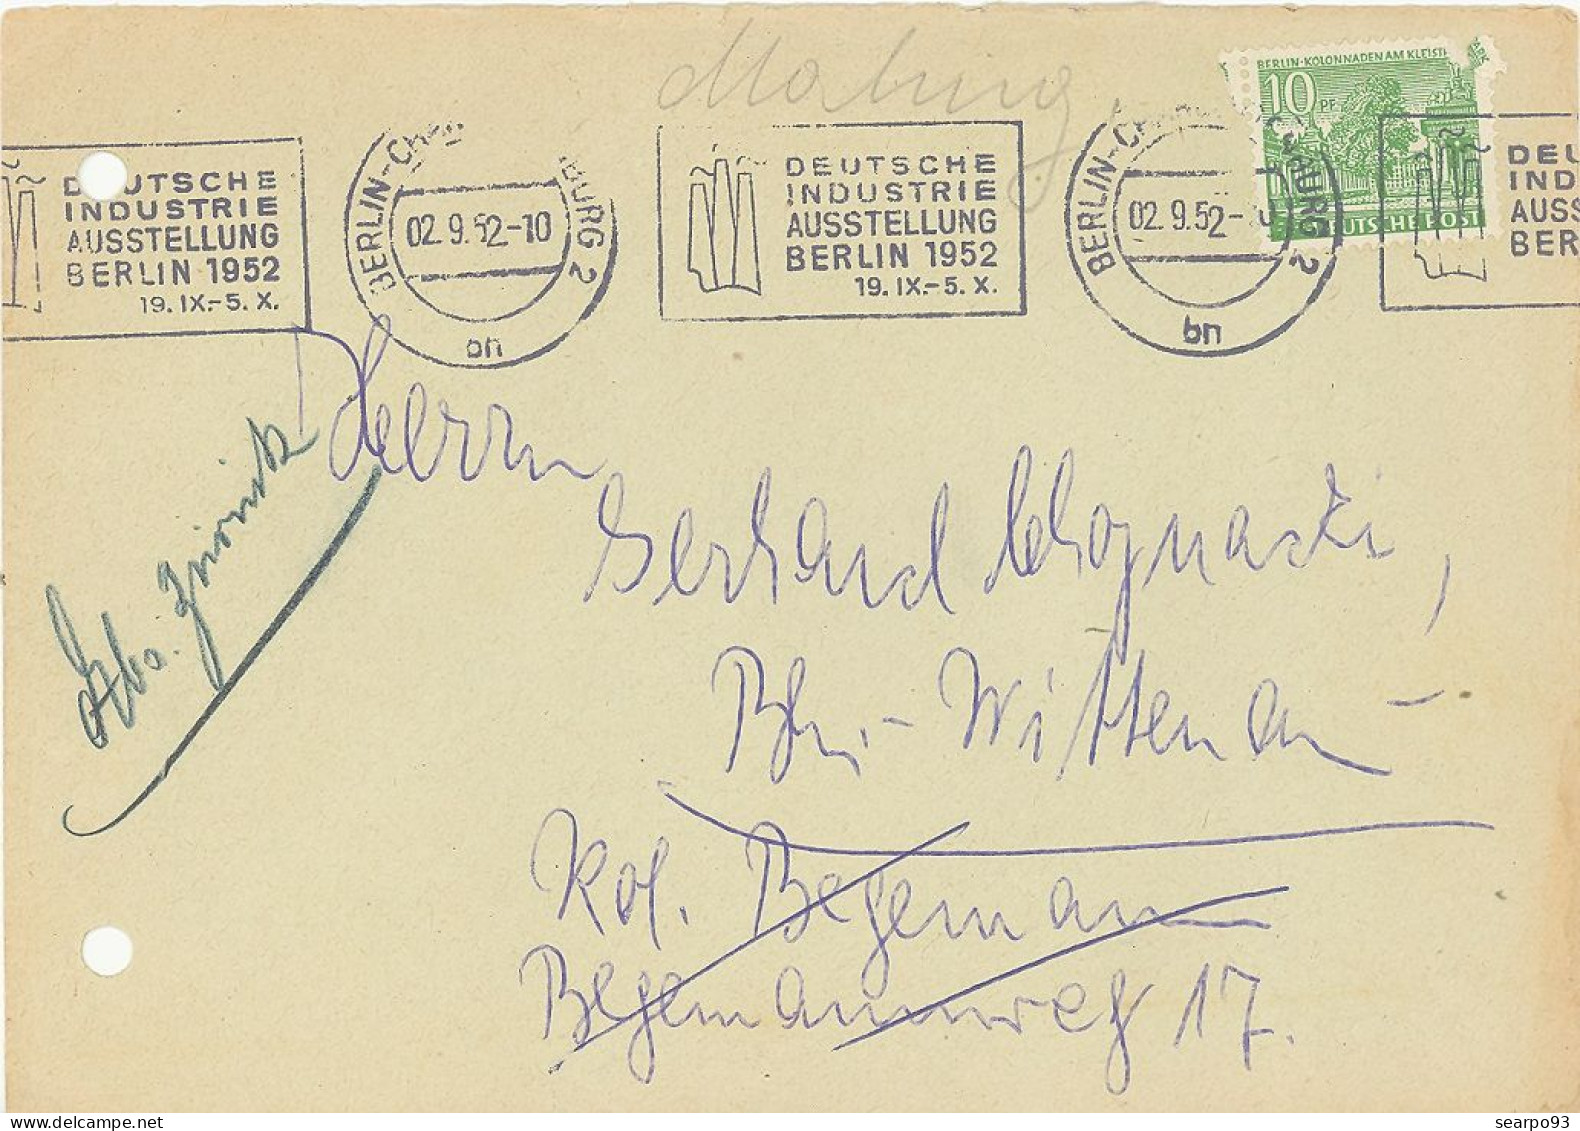 BERLIN·KOLONNADEN AM KLEISTPARK
10 PF
DEUTSCHE POST
DEUTSCHE
INDUSTRIE
AUSSTELLUNG
BERLIN 1952
19. IX.-5. X.
BERLIN-CHARLOTTENBURG 2
02.9.52-10
bn
DEUTSCHE
INDUSTRIE
AUSSTELLUNG
BERLIN 1952
19. IX.-5. X.
BERLIN-CHARLOTTENBURG 2
02.9.52-10
bn
DEU
IND
AUSS
BER
Herrn
Gerhard
Bln.-Wittenau
Kol. Begemann
Begemannweg 17.
searpo93